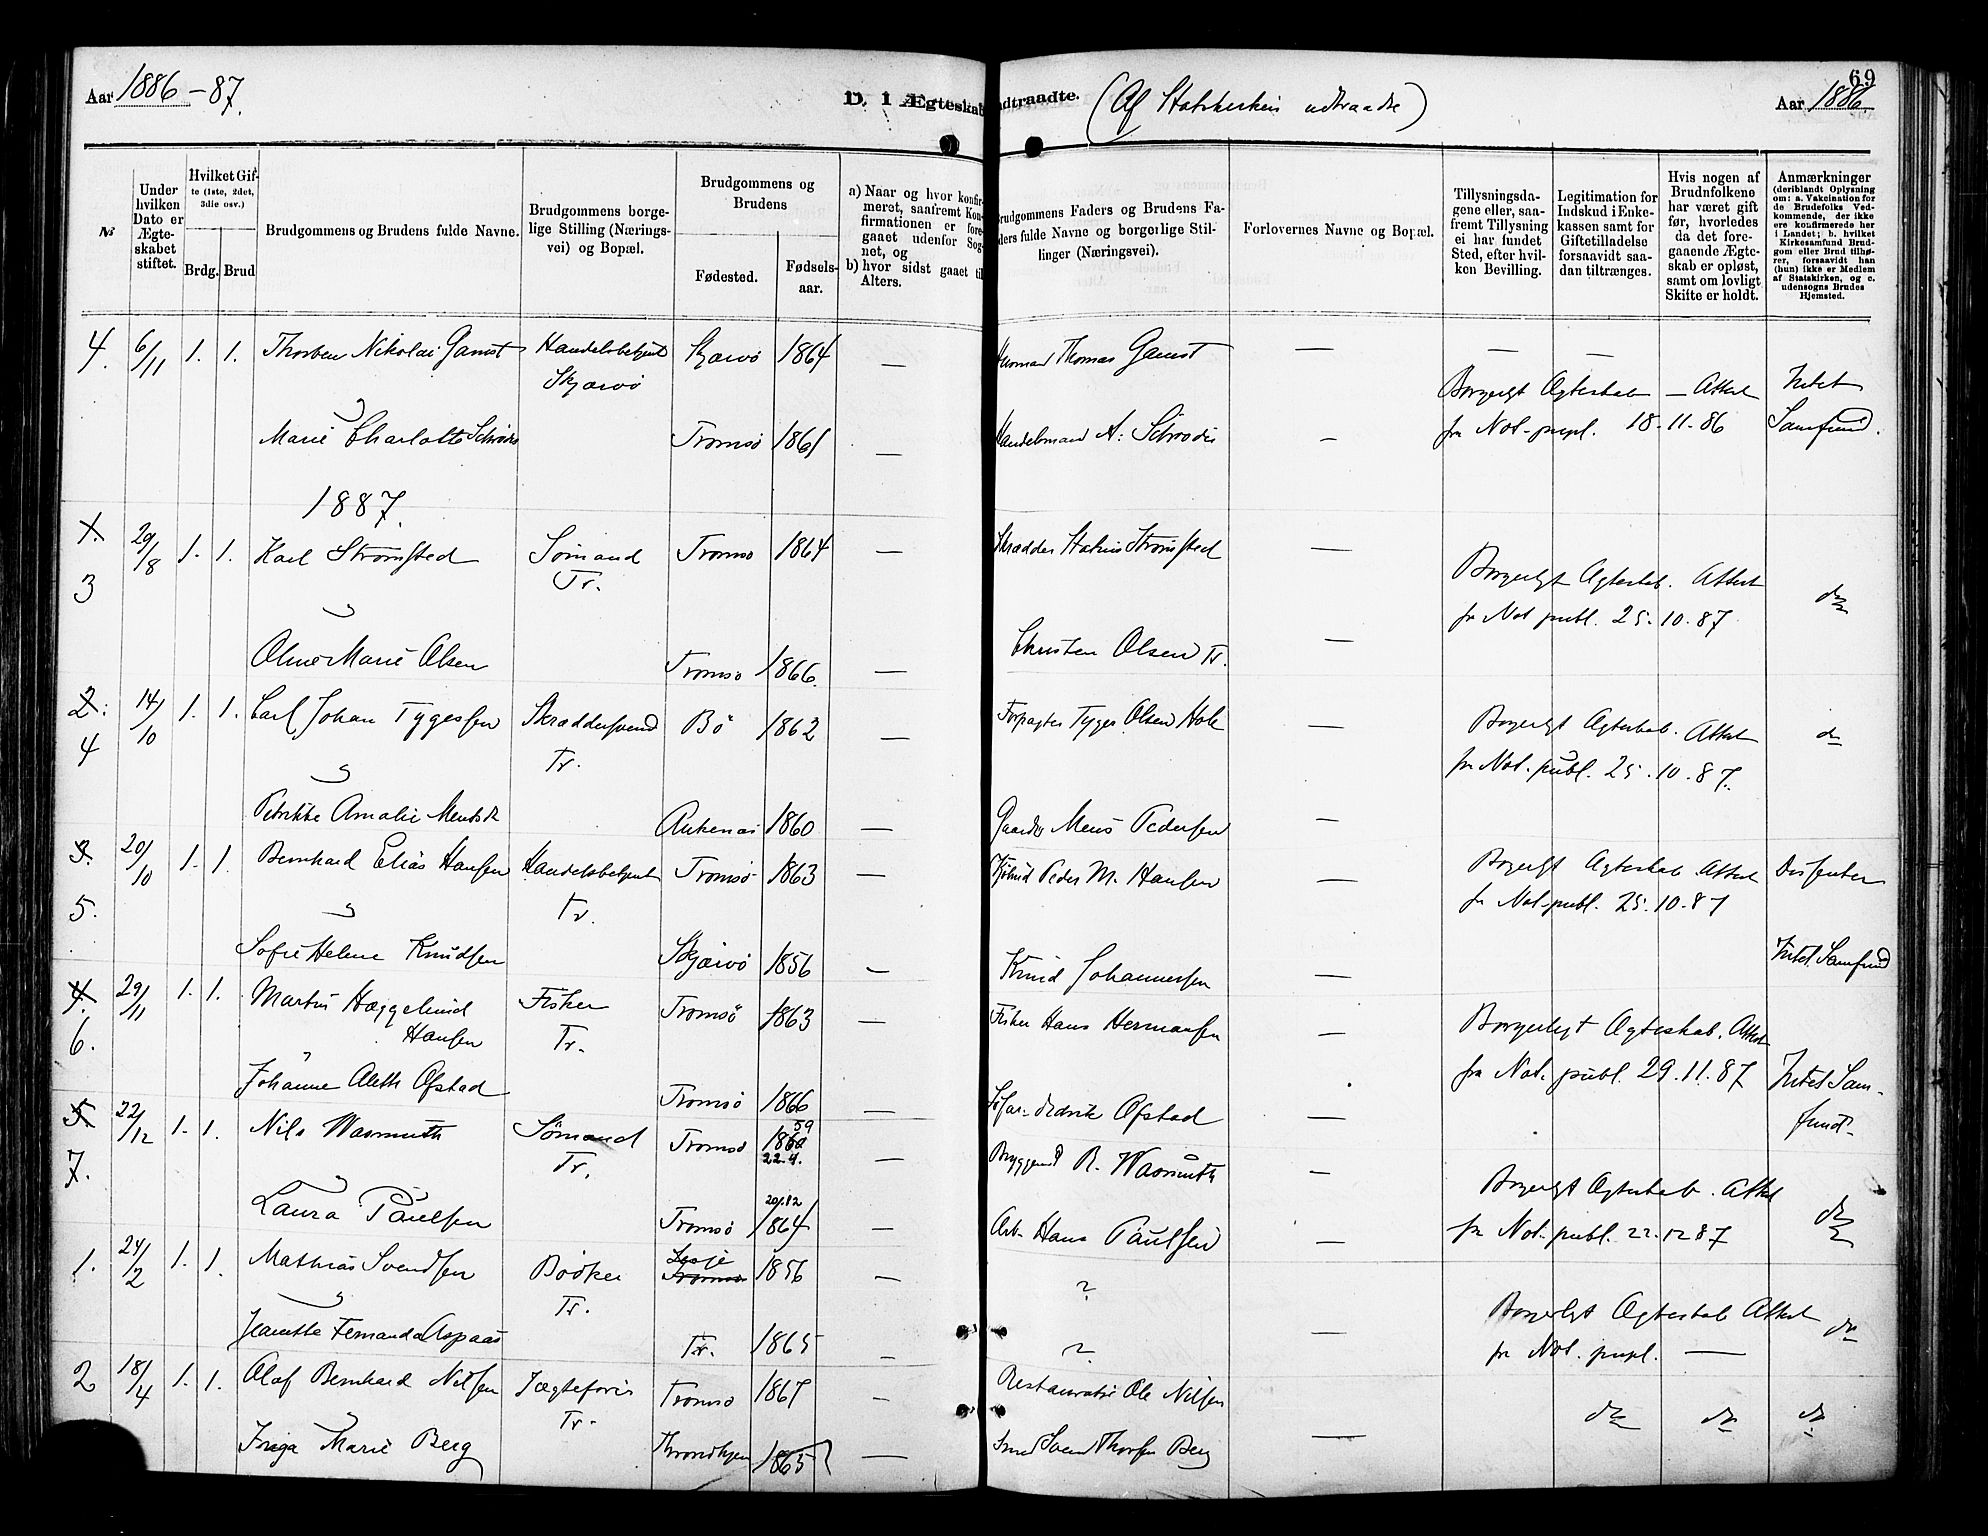 Aar 1886-87.
D. 1 Ægteskab
udtraadte.
(Af Statskirken udtraadte)
69
Aar 1886
№
Under hvilken Dato er Ægteskabet stiftet.
Hvilket Gifte (1ste, 2det, 3die osv.)
Brdg. Brud
Brudgommens og Brudens fulde Navne.
Brudgommens borgelige Stilling (Næringsvei) og Bopæl.
Brudgommens og Brudens
Fødested.
Fødselsaar.
a) Naar og hvor konfirmeret, saafremt Konfirmationen er foregaaet udenfor Sognet, og
b) hvor sidst gaaet til Alters.
Brudgommens Faders og Brudens Faders fulde Navne og borgerlige Stillinger (Næringsvei).
Forlovernes Navne og Bopæl.
Tillysningsdagene eller, saafremt Tillysning ei har fundet Sted, efter hvilken Bevilling.
Legitimation for Indskud i Enkekassen samt for Giftetilladelse forsaavidt saadan tiltrænges.
Hvis nogen af Brudnfolkene har været gift før, hvorledes da det foregaaende Ægteskab er opløst, samt om lovligt Skifte er holdt.
Anmærkninger
(deriblandt Oplysning om: a. Vakcination for de Brudefolks Vedkommende, der ikke ere konfirmerede her i Landet; b. hvilket Kirkesamfund Brudgom eller Brud tilhører, forsaavidt han (hun) ikke er Medlem af Statskirken, og c. udensogns Brudes Hjemsted.
4. 6/11 1. 1. Thorben Nikolai Gamst Handelsbetjent Skjærvö 1864 — Thomas Gamst — — —
Skjærvö
Borgerligt Ægteskab — Attest Intet
Marie Charlotte Schrøder Tromsö 1861 — Handelsmand A. Schrøder — fra Not. pupl. 18-11-86 Samfund.
1887.
1. 29/8 1. 1. Karl Strømsted Sømand Tromsö 1864 — Skrædder Strømsted —
3 Tr.
Borgerligt Ægteskab. Attest do
fr Not publ. 25-10-87
Marie Olsen Tromsö 1866. — Christen Olsen Tr. —
2. 14/10 1. 1. Carl Johan Tygessen Skræddersvend Bö 1862 — Forpagter Tyges Olsen Hole — Borgerligt Ægteskab. Attest do
4 Tr. fra Not. publ. 25-10-87.
Petrikke Amalie Ankenæs 1860 — Gaardbr Mens Pedersen —
3. 20/10 1. 1. Bernhard Elias Hansen Handelsbetjent Tromsö 1863 — Peder M. Hansen — Borgerligt Ægteskab. Attest Dissenter
5. Tr. fr Not. publ. 25-10-87
Sofie Helene Knudsen Skjærvö 1856 — Knud Johannessen — Intet Samfund
4. 29/11 1. 1. Martin Hæggelund Fisker Tromsö 1863 — Fisker Hans Hermansen — Borgerligt Ægteskab. Attest
6. Hansen Tr. fra Not. publ. 29.11.87 Intet Sam-
Johanne Aleth Ofstad Tromsö 1866 — Fredrik Ofstad — fund
5 22/12 1. 1. Nils Wasmuth Sømand Tromsö 1860 59 22.4. — Bryggemd R. Wasmuth —
7. Tr. Borgerligt Ægteskab. Attest do
Laura Paulsen Tromsö 20/12 1864 — Arb. Hans Paulsen — fr Not. publ. 22-12 87
1. 24/2 1. 1. Mathias Svendsen Bödker Lesje Tromsö 1856 — ?
Tr. Borgerligt Ægteskab Attest do
Jeanette Fernanda Aspaas Tr. 1865 — ? — fr Not. pupl. —
2 18/4 1. 1. Olaf Bernhard Nilsen Jægtefører Tromsö 1867 — Restauratør Ole Nilsen
Tr. do do do
Inga Marie Berg Throndhjem 1865 — Smed Svend Thorsen Berg —